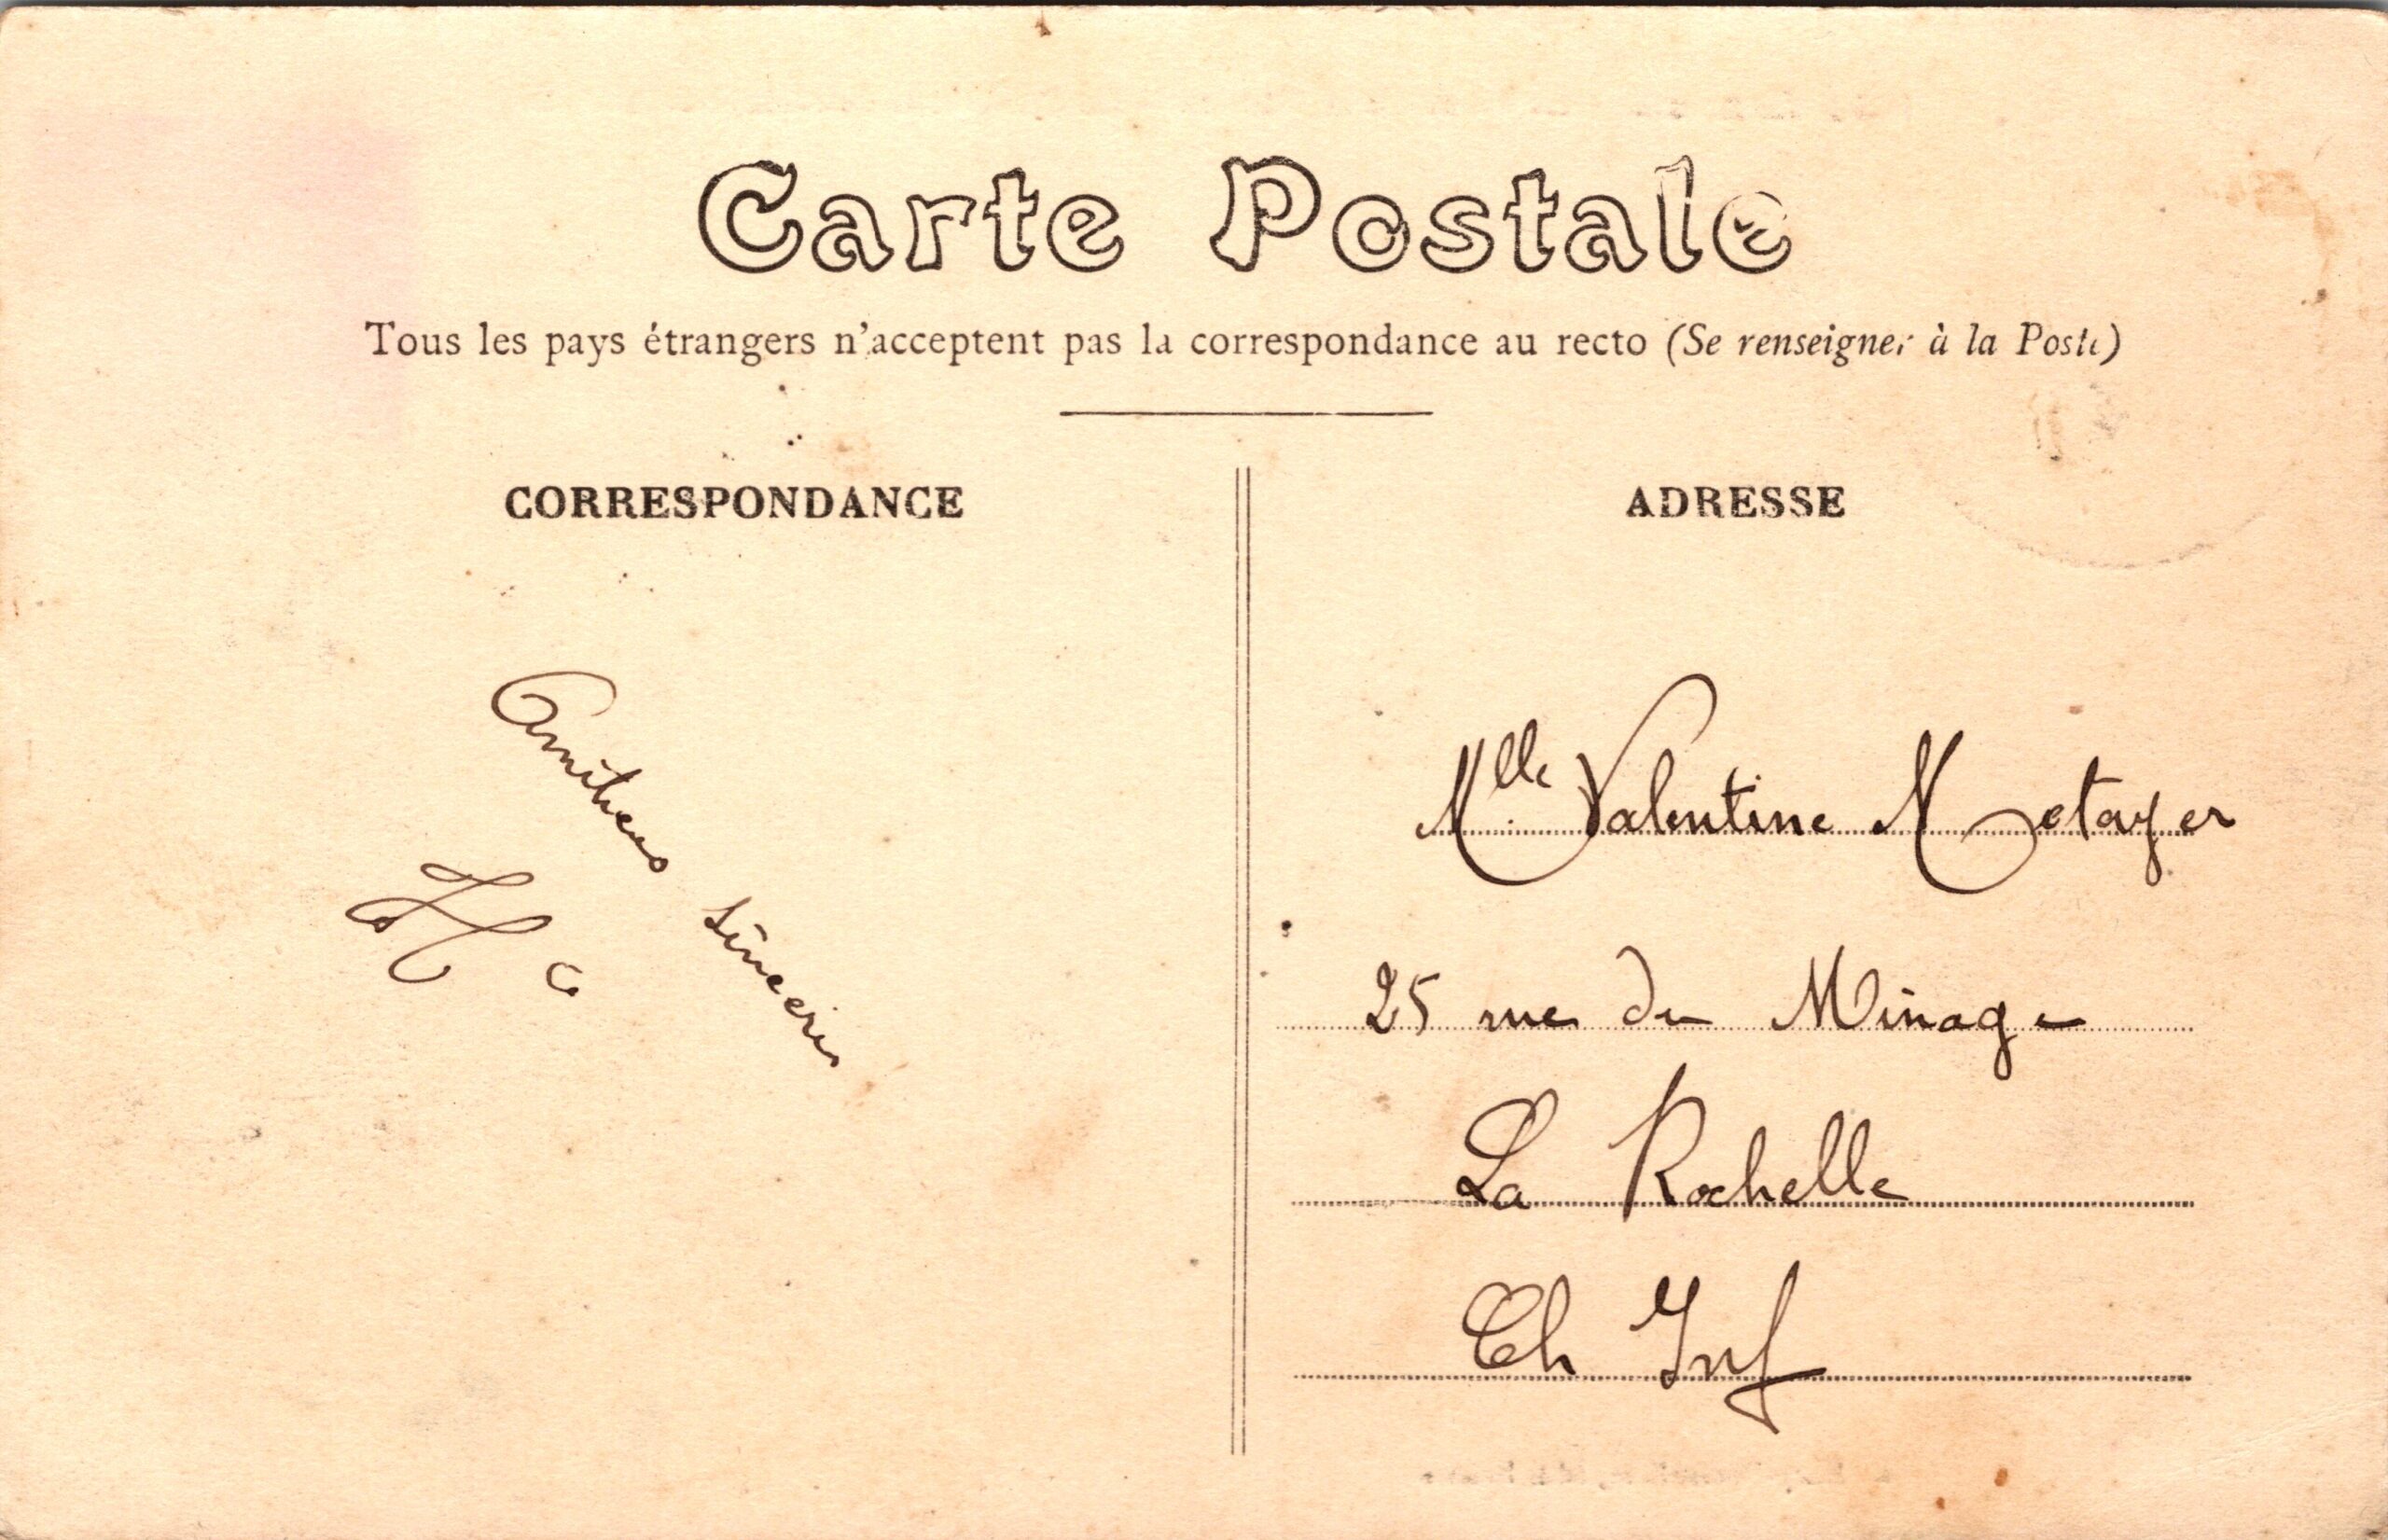 Carte Postale
Tous les pays étrangers n'acceptent pas la correspondance au recto (Se renseigner à la Poste)
CORRESPONDANCE
ADRESSE
Amitiés sincères
Mlle Valentine Metayer
25 rue du Minage
La Rochelle
Ch Inf